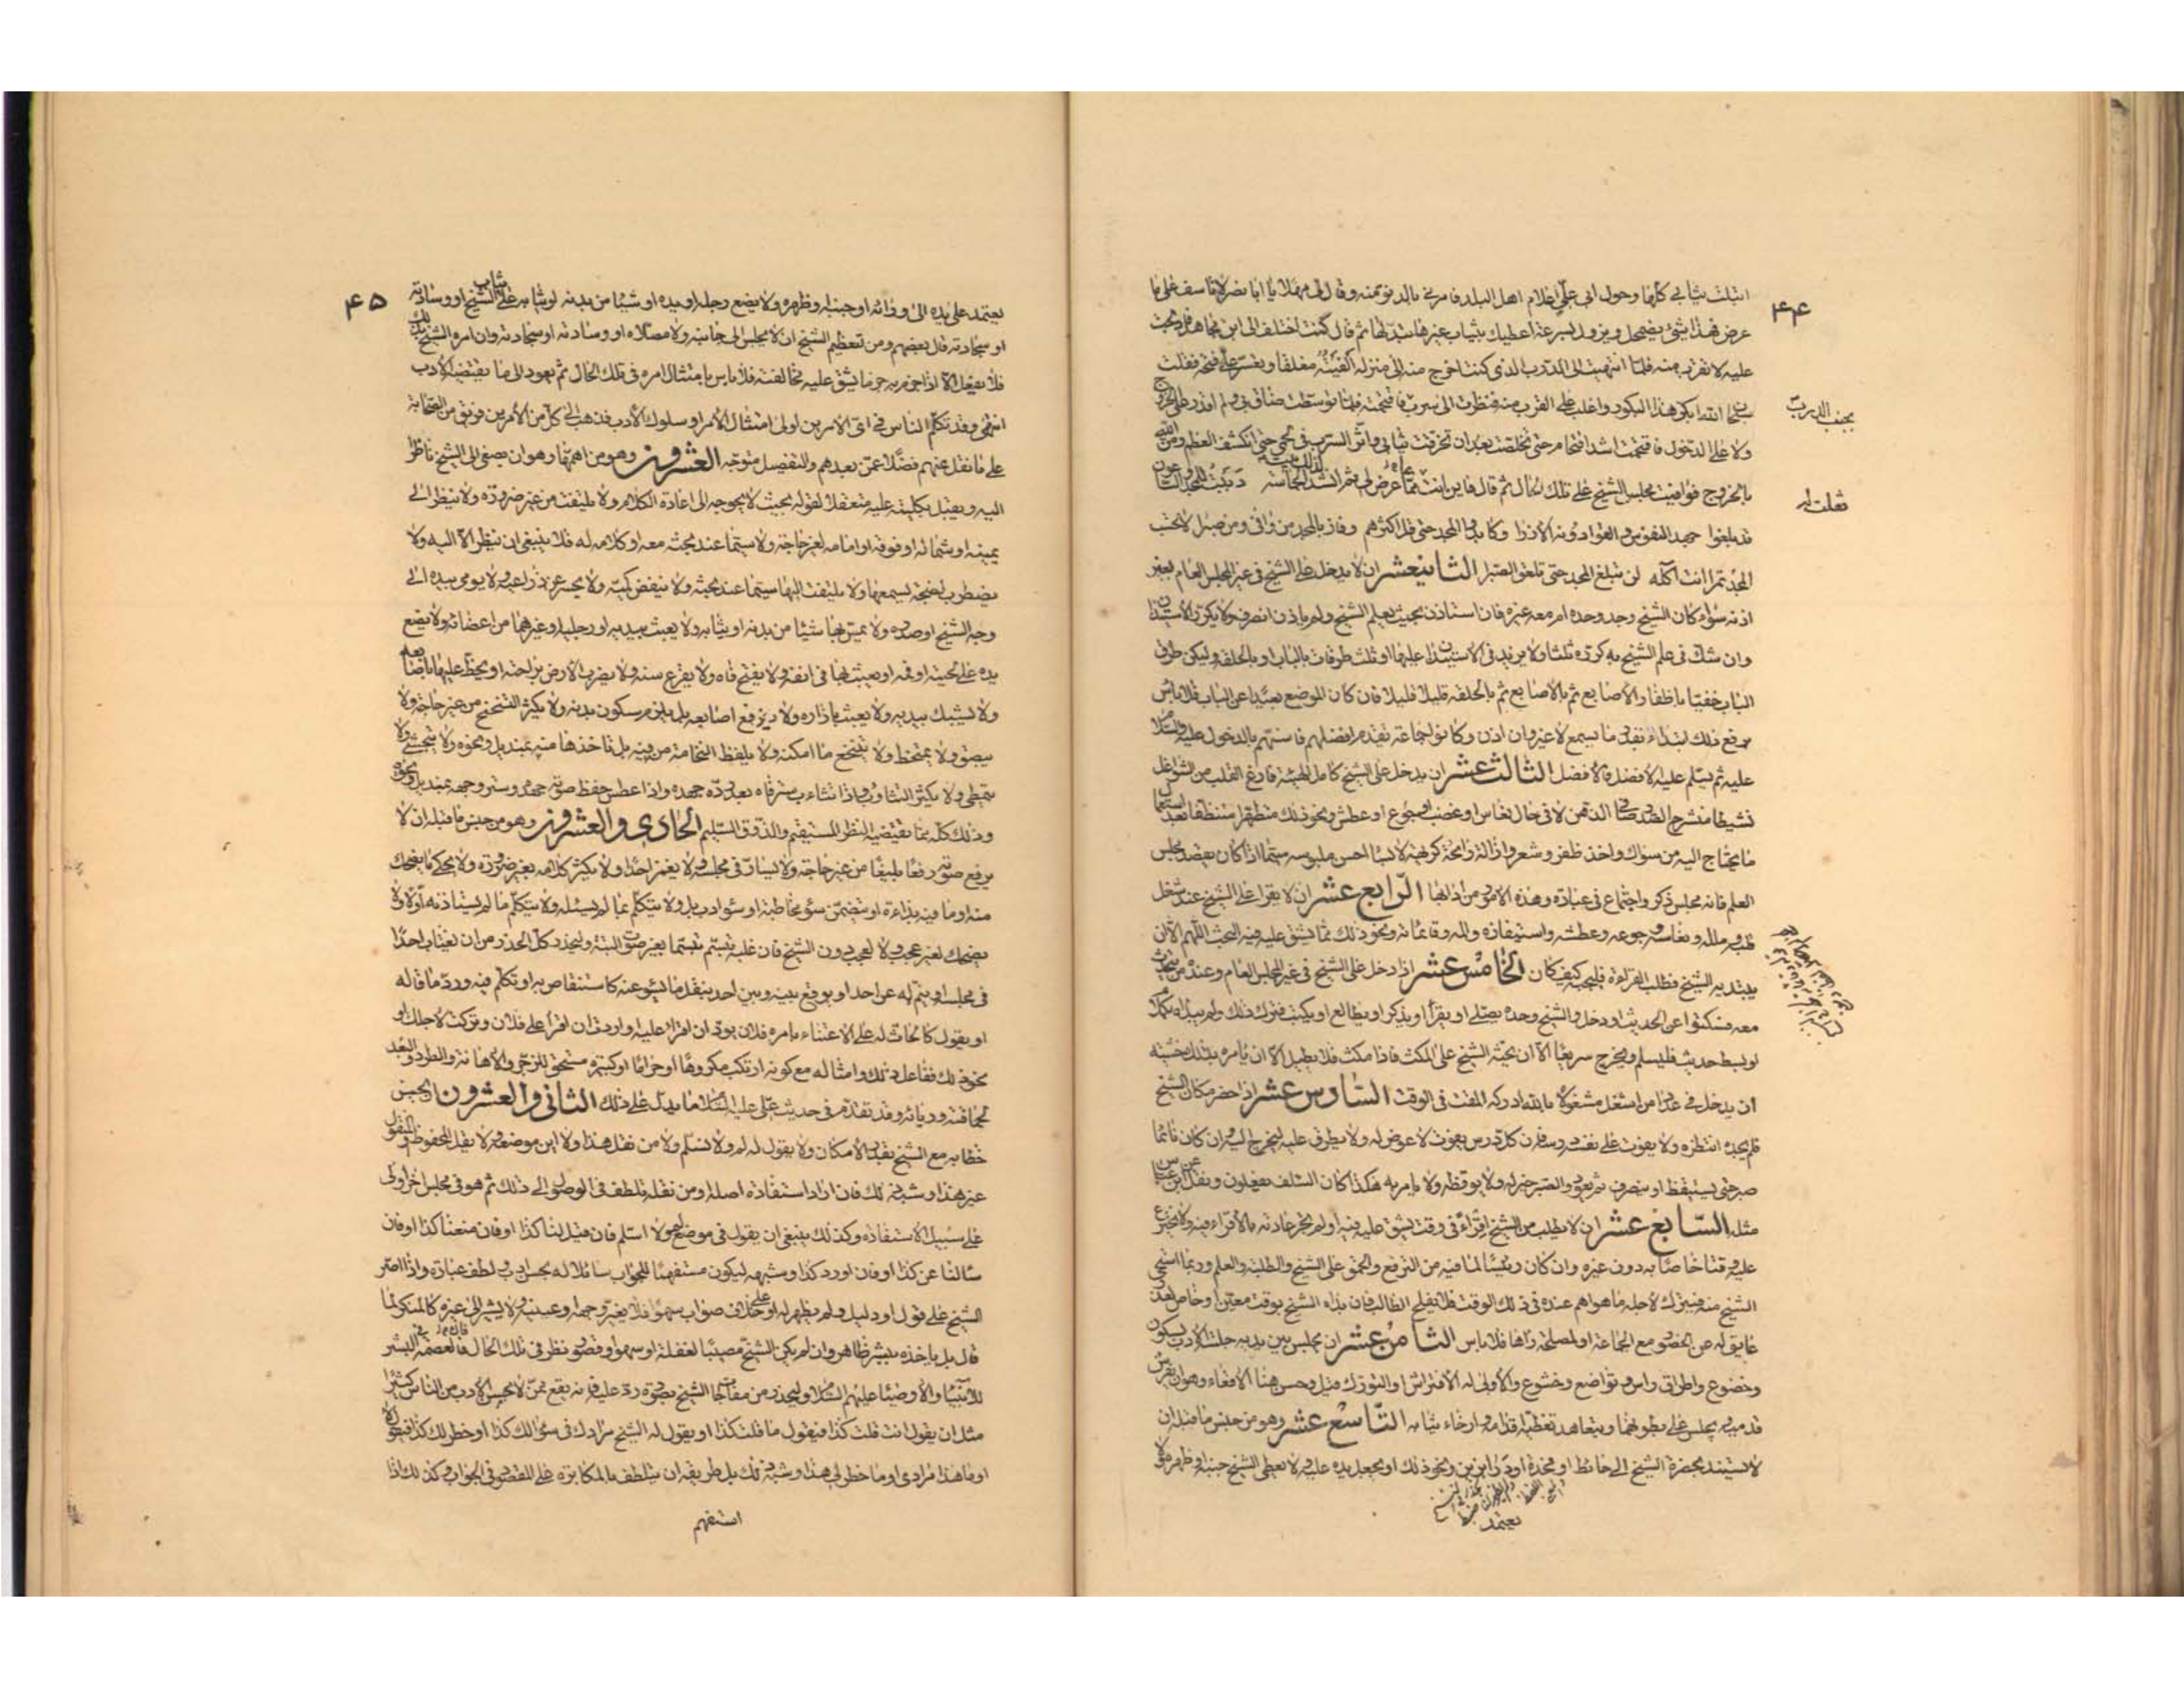 ۴۴
ابتلت ثيابي كلها وحول ابي علي اعلام اهل البلد فامرني بالدنو منه وقال لي مهلا يا ابا نصر لا تاسف على ما
عرض فهذا شئ يضمحل ويزول بسرعة اعطيك ثياب غيرها ثم قال كنت اختلف الى ابن مجاهد فادلجت
عليه لاتقرب منه فلما انتهيت الى الدرب الذي كنت اخرج منه الى منزله الفيته مغلقا وتعسر علي فتحه فقلت
سبحان الله ابكر هذا البكور واغلب على القرب منه فنظرت الى سرب فاقتحمته فلما توسطت ضاق بي ولم اقدر على الخروج
بجنب الدرب
ولا على الدخول فاقتحمت اشد اقتحام حتى تخلصت بعد ان تخرقت ثيابي واثر السرب في لحمي حتى انكشف العظم ومن الله
بالخروج فوافيت مجلس الشيخ على تلك الحال ثم قال فاين انت مما عرض لي ثم انشد الحماسة دببت للمجد والساعون
قد بلغوا جهد النفوس والقوا دونه الازرا وكابدوا المجد حتى مل اكثرهم وفاز بالمجد من وافى ومن صبرا لا تحسب
المجد تمرا انت آكله لن تبلغ المجد حتى تلعق الصبرا الثاني عشر ان لا يدخل على الشيخ في غير المجلس العام بغير
اذنه سواء كان الشيخ وحده ام معه غيره فان استاذن بحيث يعلم الشيخ ولم ياذن انصرف ولا يكرر الاستيذان
وان شك في علم الشيخ به كرره ثلثا ولا يزيد في الاستيذان عليها او ثلث طرقات بالباب او بالحلقة وليكن طرق
الباب خفيا باظفار الاصابع ثم بالاصابع ثم بالحلقة قليلا قليلا فان كان الموضع بعيدا عن الباب فلا باس
برفع ذلك ابتداء بقدر ما يسمع لا غير وان اذن وكانوا جماعة تقدم افضلهم فاسنهم بالدخول عليه والسلام
عليه ثم يسلم عليه الافضل فالافضل الثالث عشر ان يدخل على الشيخ كامل الهيئة فارغ القلب من الشواغل
نشيطا منشرح الصدر صافي الذهن لا في حال نعاس او غضب او جوع او عطش ونحو ذلك متطهرا متنظفا بعد استعمال
ما يحتاج اليه من سواك واخذ ظفر وشعر وازالة رائحة كريهة لابسا احسن ملبوسه سيما اذا كان يقصد مجلس
العلم فانه مجلس ذكر واجتماع في عبادة وهذه الامور من ادابها الرابع عشر ان لا يقرا على الشيخ عند شغل
قلبه وملله ونعاسه وجوعه وعطشه واستيفازه والمه وقائلته ونحو ذلك مما يشق عليه فيه البحث اللهم الا ان
يبتديه الشيخ فطلب القراءة فليجبه كيف كان الخامس عشر اذا دخل على الشيخ في غير المجلس العام وعنده من يتحدث
معه فسكتوا عن الحديث او دخل والشيخ وحده يصلي او يقرأ او يذكر او يطالع او يكتب فترك ذلك ولم يبداه بكلام
او بسط حديث فليسلم ويخرج سريعا الا ان يحثه الشيخ على المكث فاذا مكث فلا يطيل الا ان يامره بذلك خشية
ان يدخل في عداد من اشغل مشغولا بالله ادركه المقت في الوقت السادس عشر اذا حضر مكان الشيخ
فلم يجده انتظره ولا يفوت على نفسه درسه فان كل درس يفوت لا عوض له ولا يطرق عليه ليخرج اليه وان كان نائما
صبر حتى يستيقظ او ينصرف ثم يعود والصبر خير له ولا يوقظه ولا يامر به هكذا كان السلف يفعلون ونقل عن ابن عباس
مثله السابع عشر ان لا يطلب من الشيخ اقراءً في وقت يشق عليه فيه او لم تجر عادته بالاقراء فيه ولا يخترع
عليه وقتا خاصا به دون غيره وان كان رئيسا لما فيه من الترفع والحمق على الشيخ والطلبة والعلم وربما استحيى
الشيخ منه فيترك لاجله ما هو اهم عنده في ذلك الوقت فلا يفلح الطالب فان بداه الشيخ بوقت معين او خاص لعذر
عايق له عن الحضور مع الجماعة او لمصلحة راها فلا باس الثامن عشر ان يجلس بين يديه جلسة الادب بسكون
وخضوع واطراق راس وتواضع وخشوع والاولى له الافتراش او التورك قيل ويحسن هنا الاقعاء وهو ان يفرش
قدميه ويجلس على بطونهما ويتعاهد تغطية اقدامه وارخاء ثيابه التاسع عشر وهو من جنس ما قبله ان
لا يستند بحضرة الشيخ الى حائط او مخدة او درابزين ونحو ذلك او يجعل يده عليه ولا يعطى الشيخ جنبه او ظهره ولا
يعتمد
۴۵
يعتمد على يده الى ورائه او جنبه او ظهره ولا يضع رجله او يده او شيئا من بدنه او ثيابه على ثياب الشيخ او وسادته
او سجادته قال بعضهم ومن تعظيم الشيخ ان لا يجلس الى جانبه ولا مصلاه او وسادته او سجادته وان امره الشيخ بذلك
فلا يفعل الا اذا جزم به جزما يشق عليه مخالفته فلا باس بامتثال امره في تلك الحال ثم يعود الى ما يقتضيه الادب
انتهى وقد تكلم الناس في اي الامرين اولى امتثال الامر او سلوك الادب فذهب الى كل من الامرين فريق من الصحابة
على ما نقل عنهم فضلا عمن بعدهم والتفصيل متوجه العشرون وهو من اهمها وهو ان يصغى الى الشيخ ناظرا
اليه ويقبل بكليته عليه متعقلا لقوله بحيث لا يحوجه الى اعادة الكلام ولا يلتفت من غير ضرورة ولا ينظر الى
يمينه او شماله او فوقه او امامه لغير حاجة ولا سيما عند بحثه معه او كلامه له فلا ينبغي ان ينظر الا اليه ولا
يضطرب لضجة يسمعها ولا يلتفت اليها سيما عند بحثه ولا ينفض كميه ولا يحسر عن ذراعيه ولا يومى بيده الى
وجه الشيخ او صدره ولا يمس بها شيئا من بدنه او ثيابه ولا يعبث بيديه او رجليه او غيرهما من اعضائه ولا يضع
يده على لحيته او فمه او يعبث بها في انفه ولا يفتح فاه ولا يقرع سنه ولا يضرب الارض براحته او يخط عليها باصابعه
ولا يشبك بيديه ولا يعبث بازاره ولا يفرقع اصابعه بل يلزم سكون بدنه ولا يكثر التنحنح من غير حاجة ولا
يبصق ولا يمتخط ولا يتنخع ما امكنه ولا يلفظ النخامة من فيه بل ياخذها منه بمنديل ونحوه ولا يتجشى ولا
يتمطى ولا يكثر التثاوب واذا تثاءب ستر فاه بعد رده جهده واذا عطس حفظ صوته جهده وستر وجهه بمنديل ونحوه
وذلك كله مما يقتضيه النظر المستقيم والذوق السليم الحادي والعشرون وهو من جنس ما قبله ان لا
يرفع صوته رفعا بليغا من غير حاجة ولا يسارّ في مجلسه ولا يغمز احدا ولا يكثر كلامه بغير ضرورة ولا يحكي ما يضحك
منه او ما فيه بذاءة او يتضمن سوء مخاطبة او سوء ادب بل ولا يتكلم بما لم يسئله ولا يتكلم ما لم يستاذنه اولا ولا
يضحك لغير عجب ولا لعجب دون الشيخ فان غلبه تبسم تبسما بغير صوت البتة وليحذر كل الحذر من ان يغتاب احدا
في مجلسه او ينم له عن احد او يوقع بينه وبين احد بنقل ما يسوء عنه كاستنقاص به او تكلم فيه ورد ما قاله
او يقول كالحاث له على الاعتناء بامره فلان يود ان اقرا عليه او اردت ان اقرأ على فلان وتركت لاجلك او
نحو ذلك ففاعل ذلك وامثاله مع كونه ارتكب مكروها او حراما او كبيرة مستحق للزجر والاهانة والطرد والبعد
لحماقته وريائه وقد تقدم في حديث علي عليه السلام ما يدل على ذلك الثاني والعشرون ان يحسن
خطابه مع الشيخ بقدر الامكان ولا يقول له لم ولا لا نسلم ولا من نقل هذا ولا اين موضعه ولا يقل المحفوظ او المنقول
غير هذا وشبه ذلك فان اراد استفادة اصله او من نقله تلطف في الوصول الى ذلك ثم هو في مجلس آخر اولى
على سبيل الاستفادة وكذلك ينبغي ان يقول في موضع لم ولا اسلم فان قيل لنا كذا او فان منعنا كذا او فان
سئلنا عن كذا او فان اورد كذا وشبهه ليكون مستفهما للجواب سائلا له بحسن ادب ولطف عبارة واذا اصر
الشيخ على قول او دليل ولم يظهر له او على خلاف صواب سهوا فلا يغير وجهه وعينيه ولا يشير الى غيره كالمنكر لما
قال بل ياخذه ببشر ظاهر وان لم يكن الشيخ مصيبا لغفلة او سهو او قصور نظر في تلك الحال فان العصمة في البشر
للانبياء والاوصياء عليهم السلام وليحذر من مفاجاة الشيخ بصورة رد عليه فانه يقع ممن لا يحسن الادب من الناس كثيرا
مثل ان يقول انت قلت كذا فيقول ما قلت كذا او يقول له الشيخ مرادك في سؤالك كذا او خطر لك كذا فيقول لا
او ما هذا مرادي او ما خطر لي هذا وشبه ذلك بل طريقه ان يتلطف بالمكابرة على المقصود في الجواب وكذلك اذا
استفهم